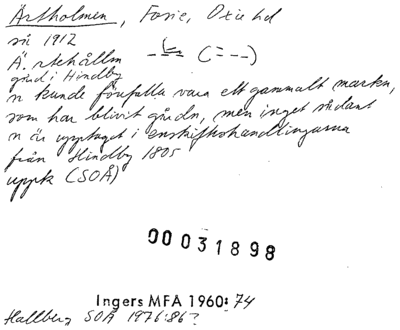 Ärtholmen, Fosie, Oxie hd
sn 1912
(= --)
Ä.
gård i Hindby
n kunde förefalla vara ett gammalt marknn,
som har blivit gårdn, men inget sådant
n är upptaget i enskifteshandlingarna
från Hindby 1805
uppk (SOÅ)
00031898
Ingers MFA 1960:74
Hallberg SOÅ 1976:86?